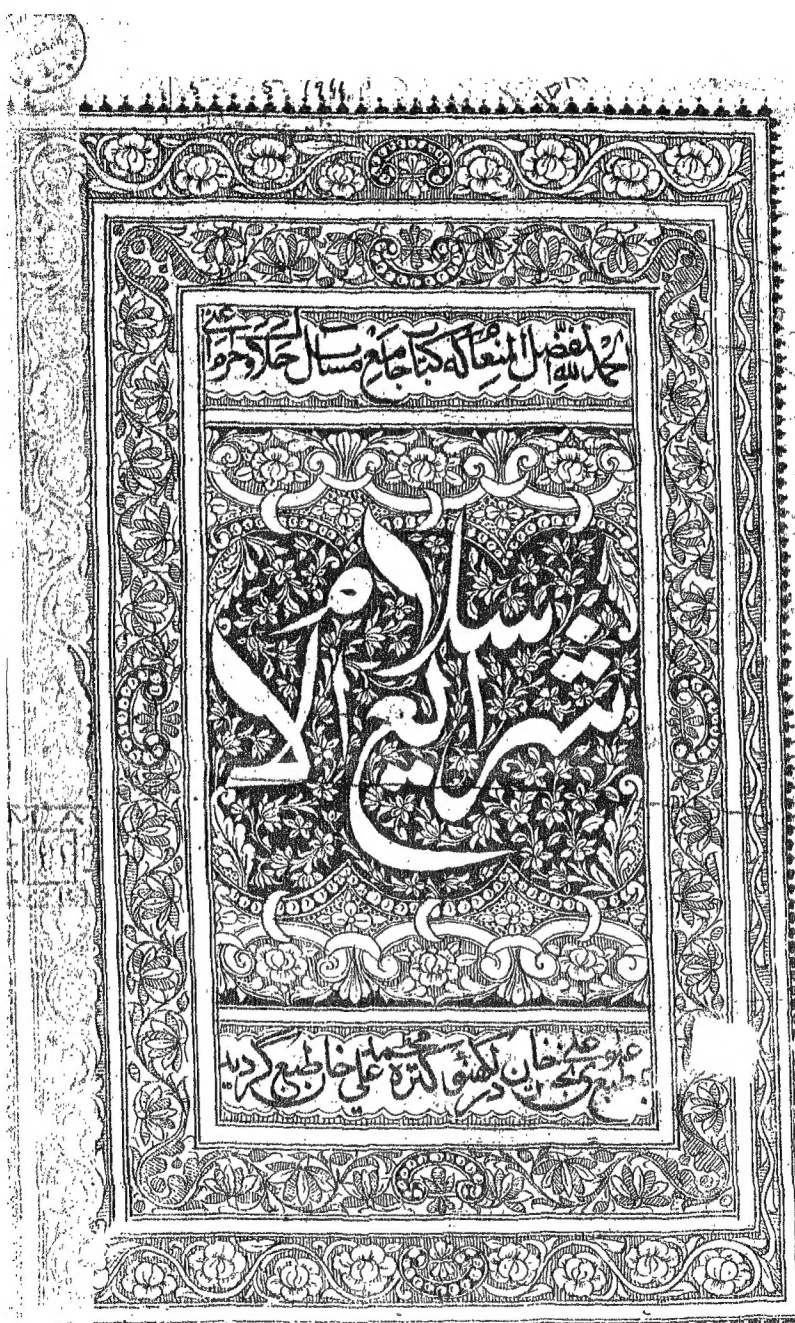 الحمد لله المفضل المنعام که کتاب جامع مسائل حلال و حرام اعنی
شرایع الاسلام
بمطبع علوی علی بخش خان در لکهنؤ کتره محمد علی خان طبع گردید